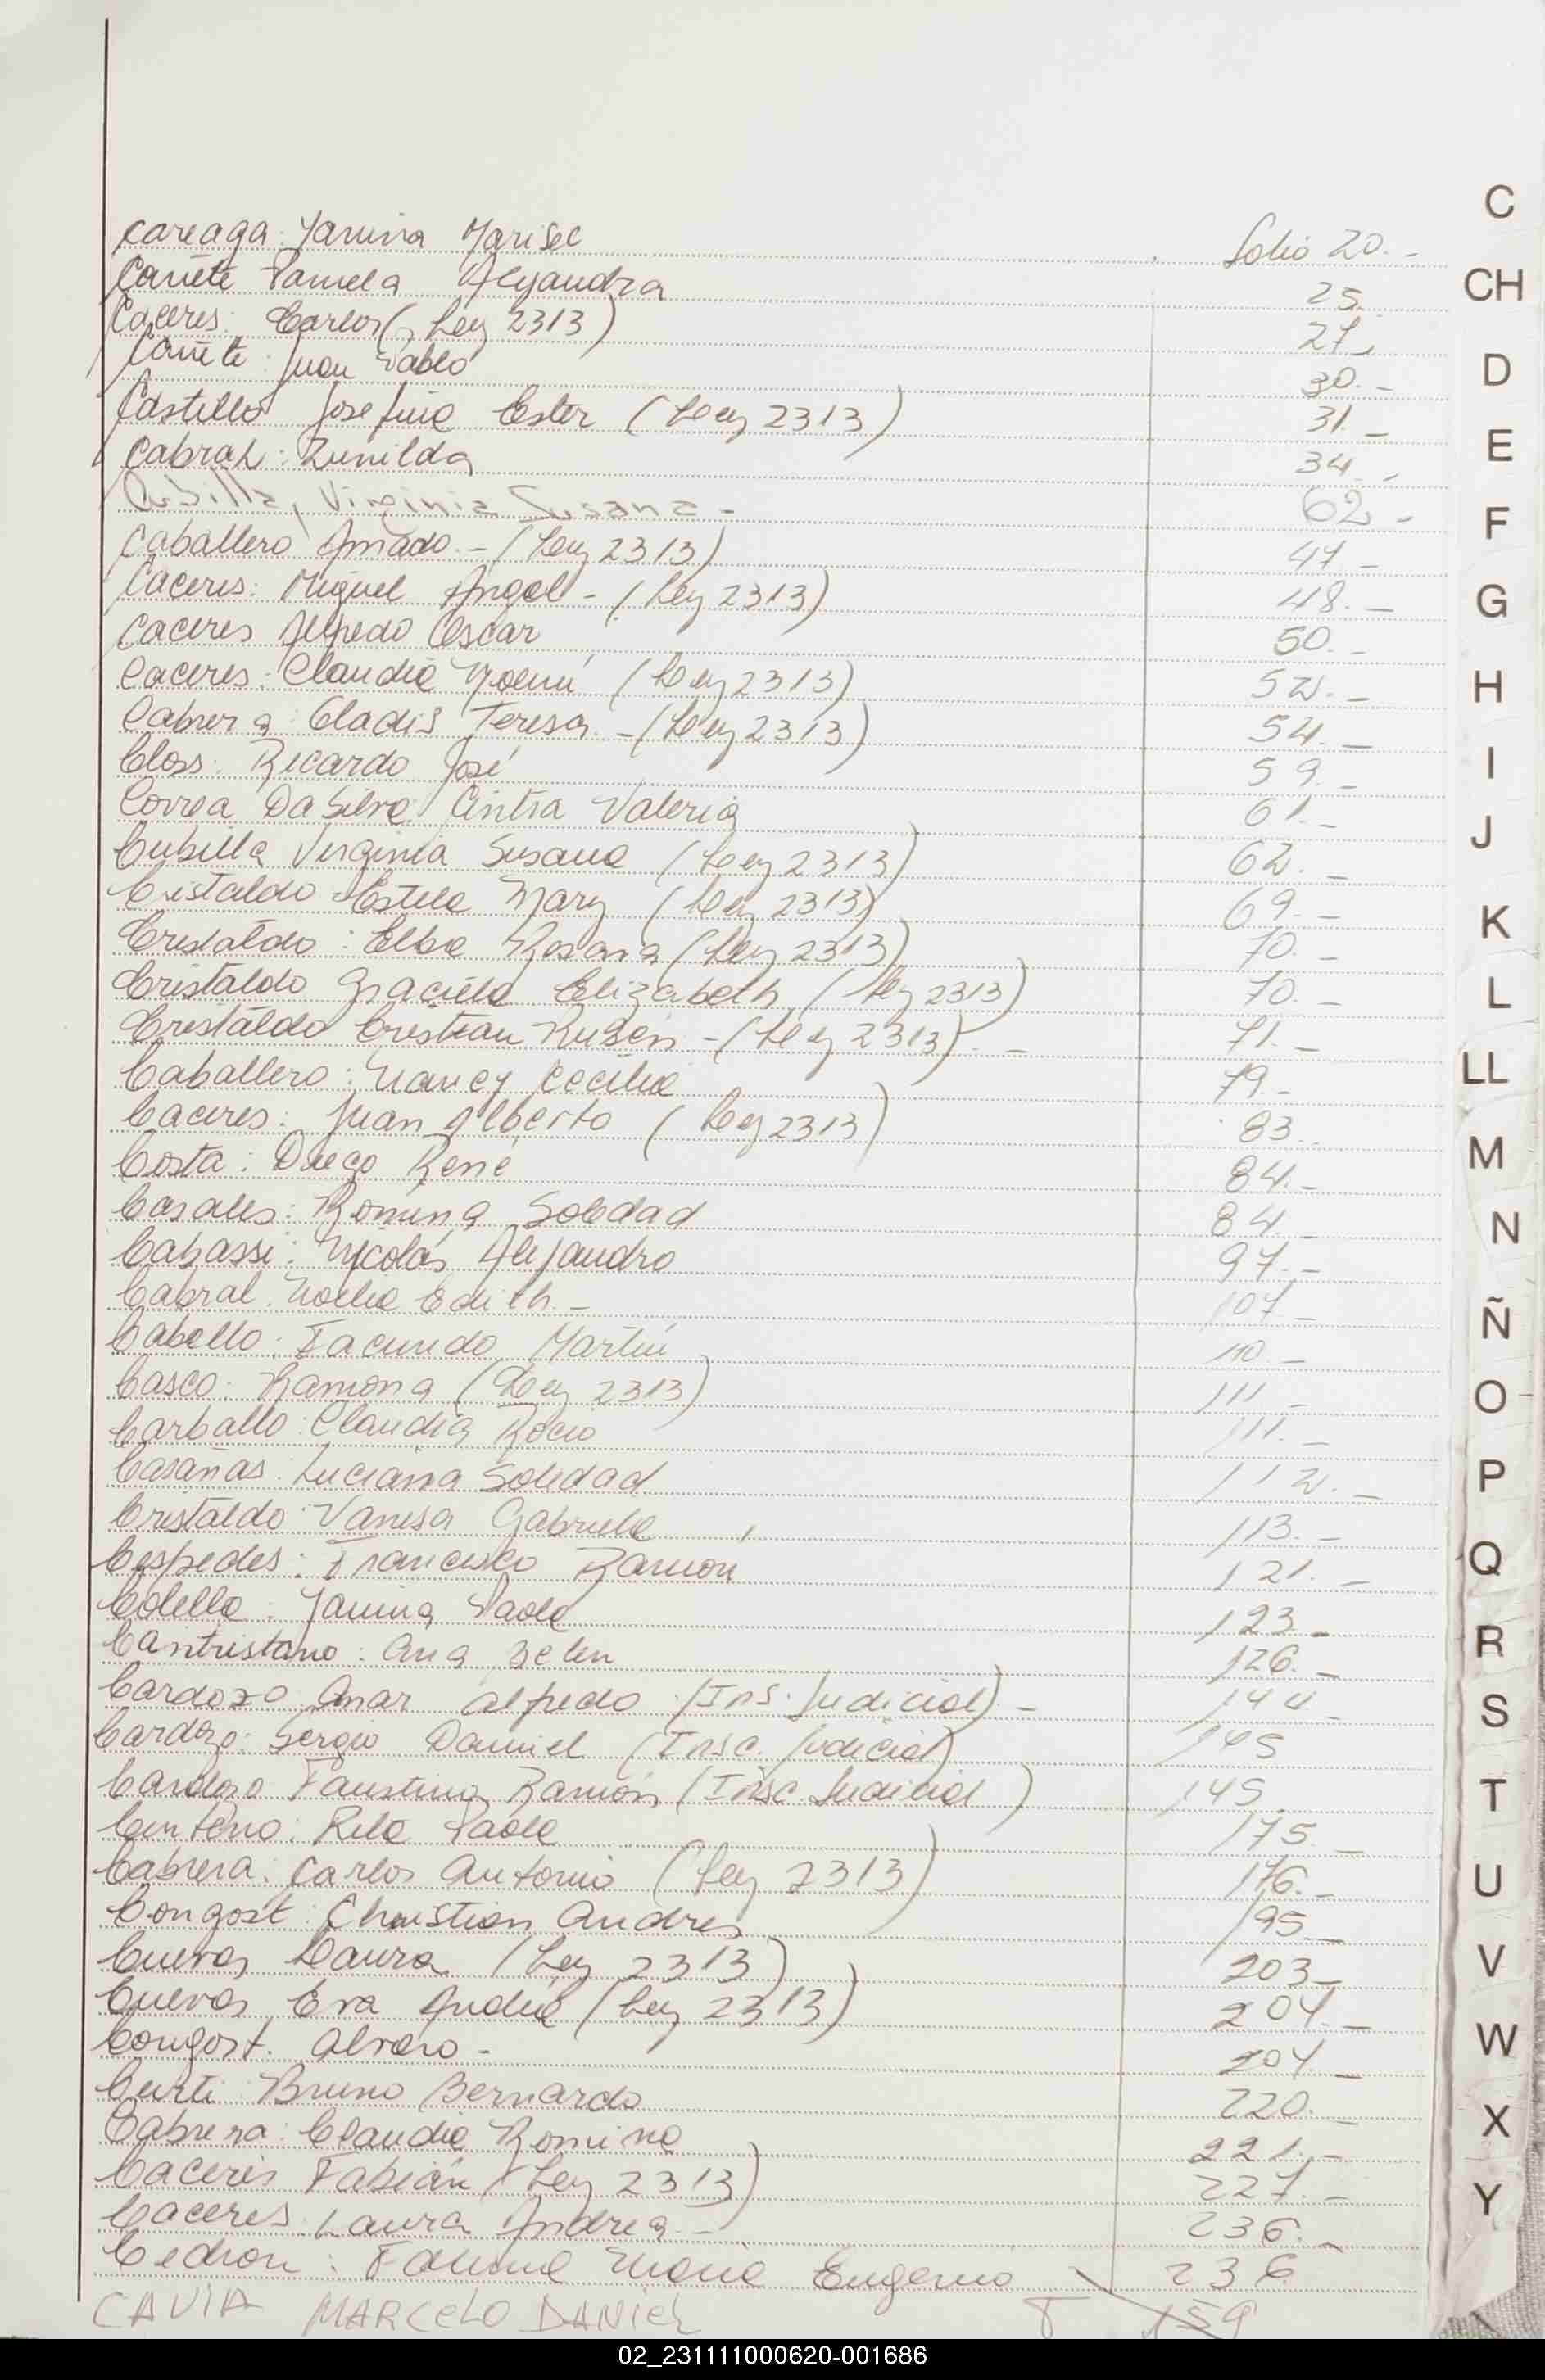 Careaga: Yanina Marisel folio 20.-
Cañete Pamela Alejandra 25.
Caceres: Carlos (Ley 2313) 27.
Cañete: Juan Pablo 30.-
Castillo Josefina Ester (Ley 2313) 31.-
Cabral: Zunilda 34.-
Cubilla, Virginia Susana - 62-
Caballero Amado - (Ley 2313) 47-
Caceres: Miguel Angel - (Ley 2313) 48.-
Caceres Alfredo Oscar 50.-
Caceres: Claudia Noemí (Ley 2313) 52.-
Cabrera: Gladis Teresa. - (Ley 2313) 54.-
Closs: Ricardo José 59.-
Correa Da Silva: Cintia Valeria 61.-
Cubilla Virginia Susana (Ley 2313) 62.-
Cristaldo Estela Mary (Ley 2313) 69.-
Cristaldo: Elba Rosana (Ley 2313) 70.-
Cristaldo Graciela Elizabeth (Ley 2313) 70.-
Cristaldo Cristian Rubén - (Ley 2313) - 71.-
Caballero: Nancy Cecilia 79.-
Caceres: Juan Alberto (Ley 2313) 83.
Costa: Diego René 84.-
Casales: Romina Soledad 84.-
Cabassi: Nicolás Alejandro 97.-
Cabral: Noelia Edith - 107-
Cabello: Facundo Martín 110.-
Casco: Ramona (Ley 2313) 111-
Carballo: Claudia Rocio 111.-
Casañas: Luciana Soledad 112.-
Cristaldo: Vanesa Gabriela 113.-
Cespedes: Francisco Ramón 121.-
Colella: Yanina Paola 123.-
Cantristano: Ana Belen 126.-
Cardozo Omar Alfredo (Ins. Judicial) - 144-
Cardozo: Sergio Daniel (Insc. Judicial) 145
Cardozo Faustino Ramón (Insc. Judicial) 145.
Centeno: Rita Paola 175.-
Cabrera: Carlos Antonio (Ley 2313) 176.-
Congost: Christian Andres 195-
Cuevas Laura (Ley 2313) 203-
Cuevas Eva (Ley 2313) 204.-
Congost. Alvaro - 204.-
Curti: Bruno Bernardo 220.-
Cabrera: Claudia Romina 221.-
Caceres Fabián (Ley 2313) 227.-
Caceres: Laura Andrea - 236.-
Cedron: Maria Eugenia 236
CAVIA MARCELO DANIEL 159
C
CH
D
E
F
G
H
I
J
K
L
LL
M
N
Ñ
O
P
Q
R
S
T
U
V
W
X
Y
02_231111000620-001686